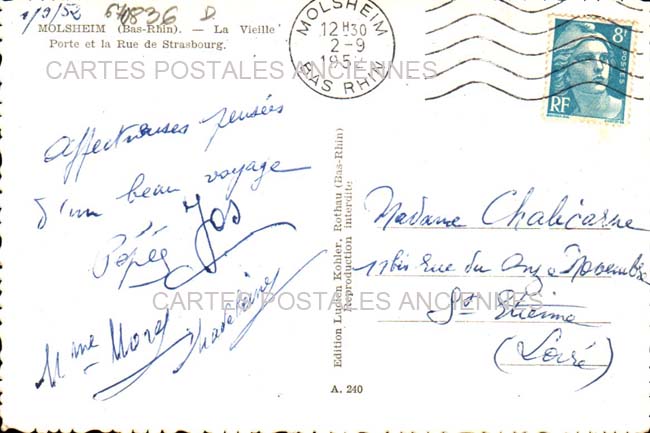 1/9/52 640836 D.
MOLSHEIM (Bas-Rhin). — La Vieille
Porte et la Rue de Strasbourg.
CARTES POSTALES ANCIENNES
MOLSHEIM
12H30
2-9
195
BAS RHIN
8F
POSTES
RF
Affectueuses pensées
d'un beau voyage
Pépée Jos
Mme Morel Madeleine
Edition Lucien Kohler, Rothau (Bas-Rhin)
Reproduction interdite
Madame Chalicarne
11bis rue du Onze Novembre
CARTES POSTALES ANCIENNES
St Etienne
(Loire)
A. 240